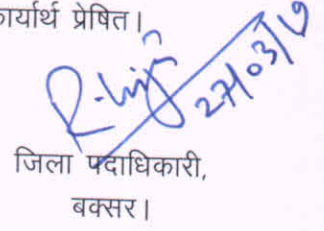 कार्यार्थ प्रेषित।
27/03/19
जिला पदाधिकारी,
बक्सर।